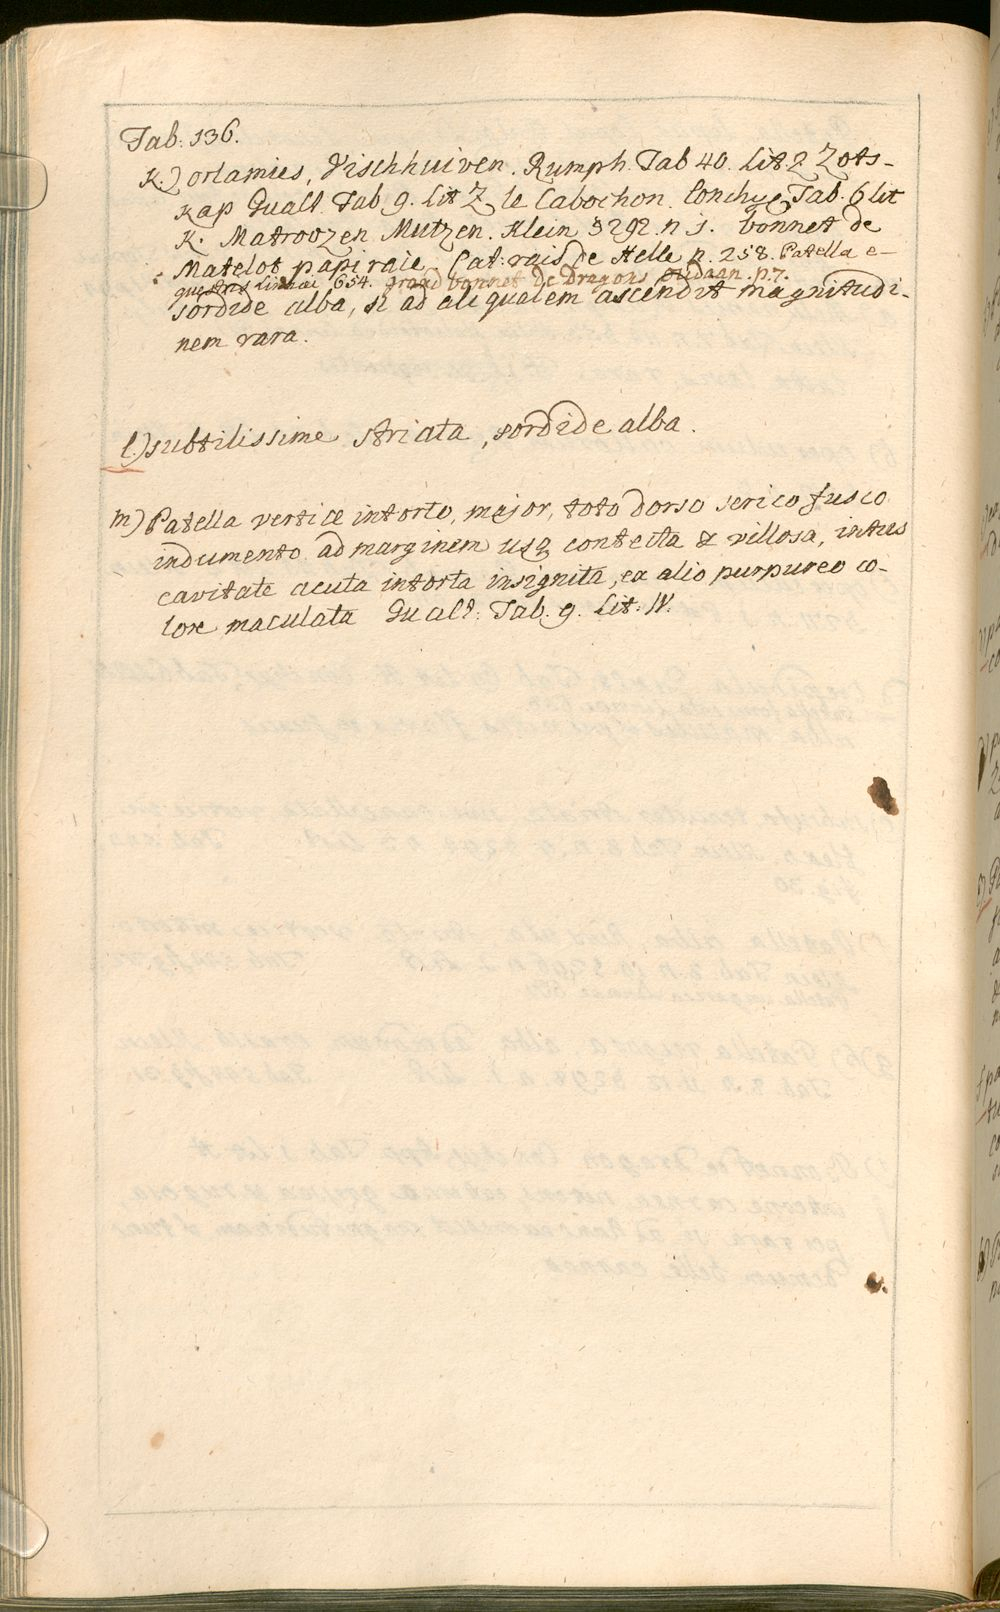 Tab. 136.
K.) orlamies, Vischhuiven. Rumph. Tab 40. Lit. Q Zots-
kap Gualt. Tab. 9. Lit Z le Cabochon. Conchyg Tab. 6 lit
K. Matroozen Mutzen. Klein § 292. n 1. bonnet de
Matelot papiraie. Cat: rais de Helle p. 258. Patella e-
questris Linnaei 654. grand bonnet de Dragons oudaan. p. 7.
sordide alba, si ad aliqualem ascendit magnitudi-
nem rara.
l.) subtilissime striata, sordide alba.
m) Patella vertice intorto, major, toto dorso serico fusco
indumento, ad marginem usq contecta & villosa, intus
cavitate acuta intorta insignita, ex alio purpureo co-
lore maculata Gualt: Tab. 9. Lit: W.